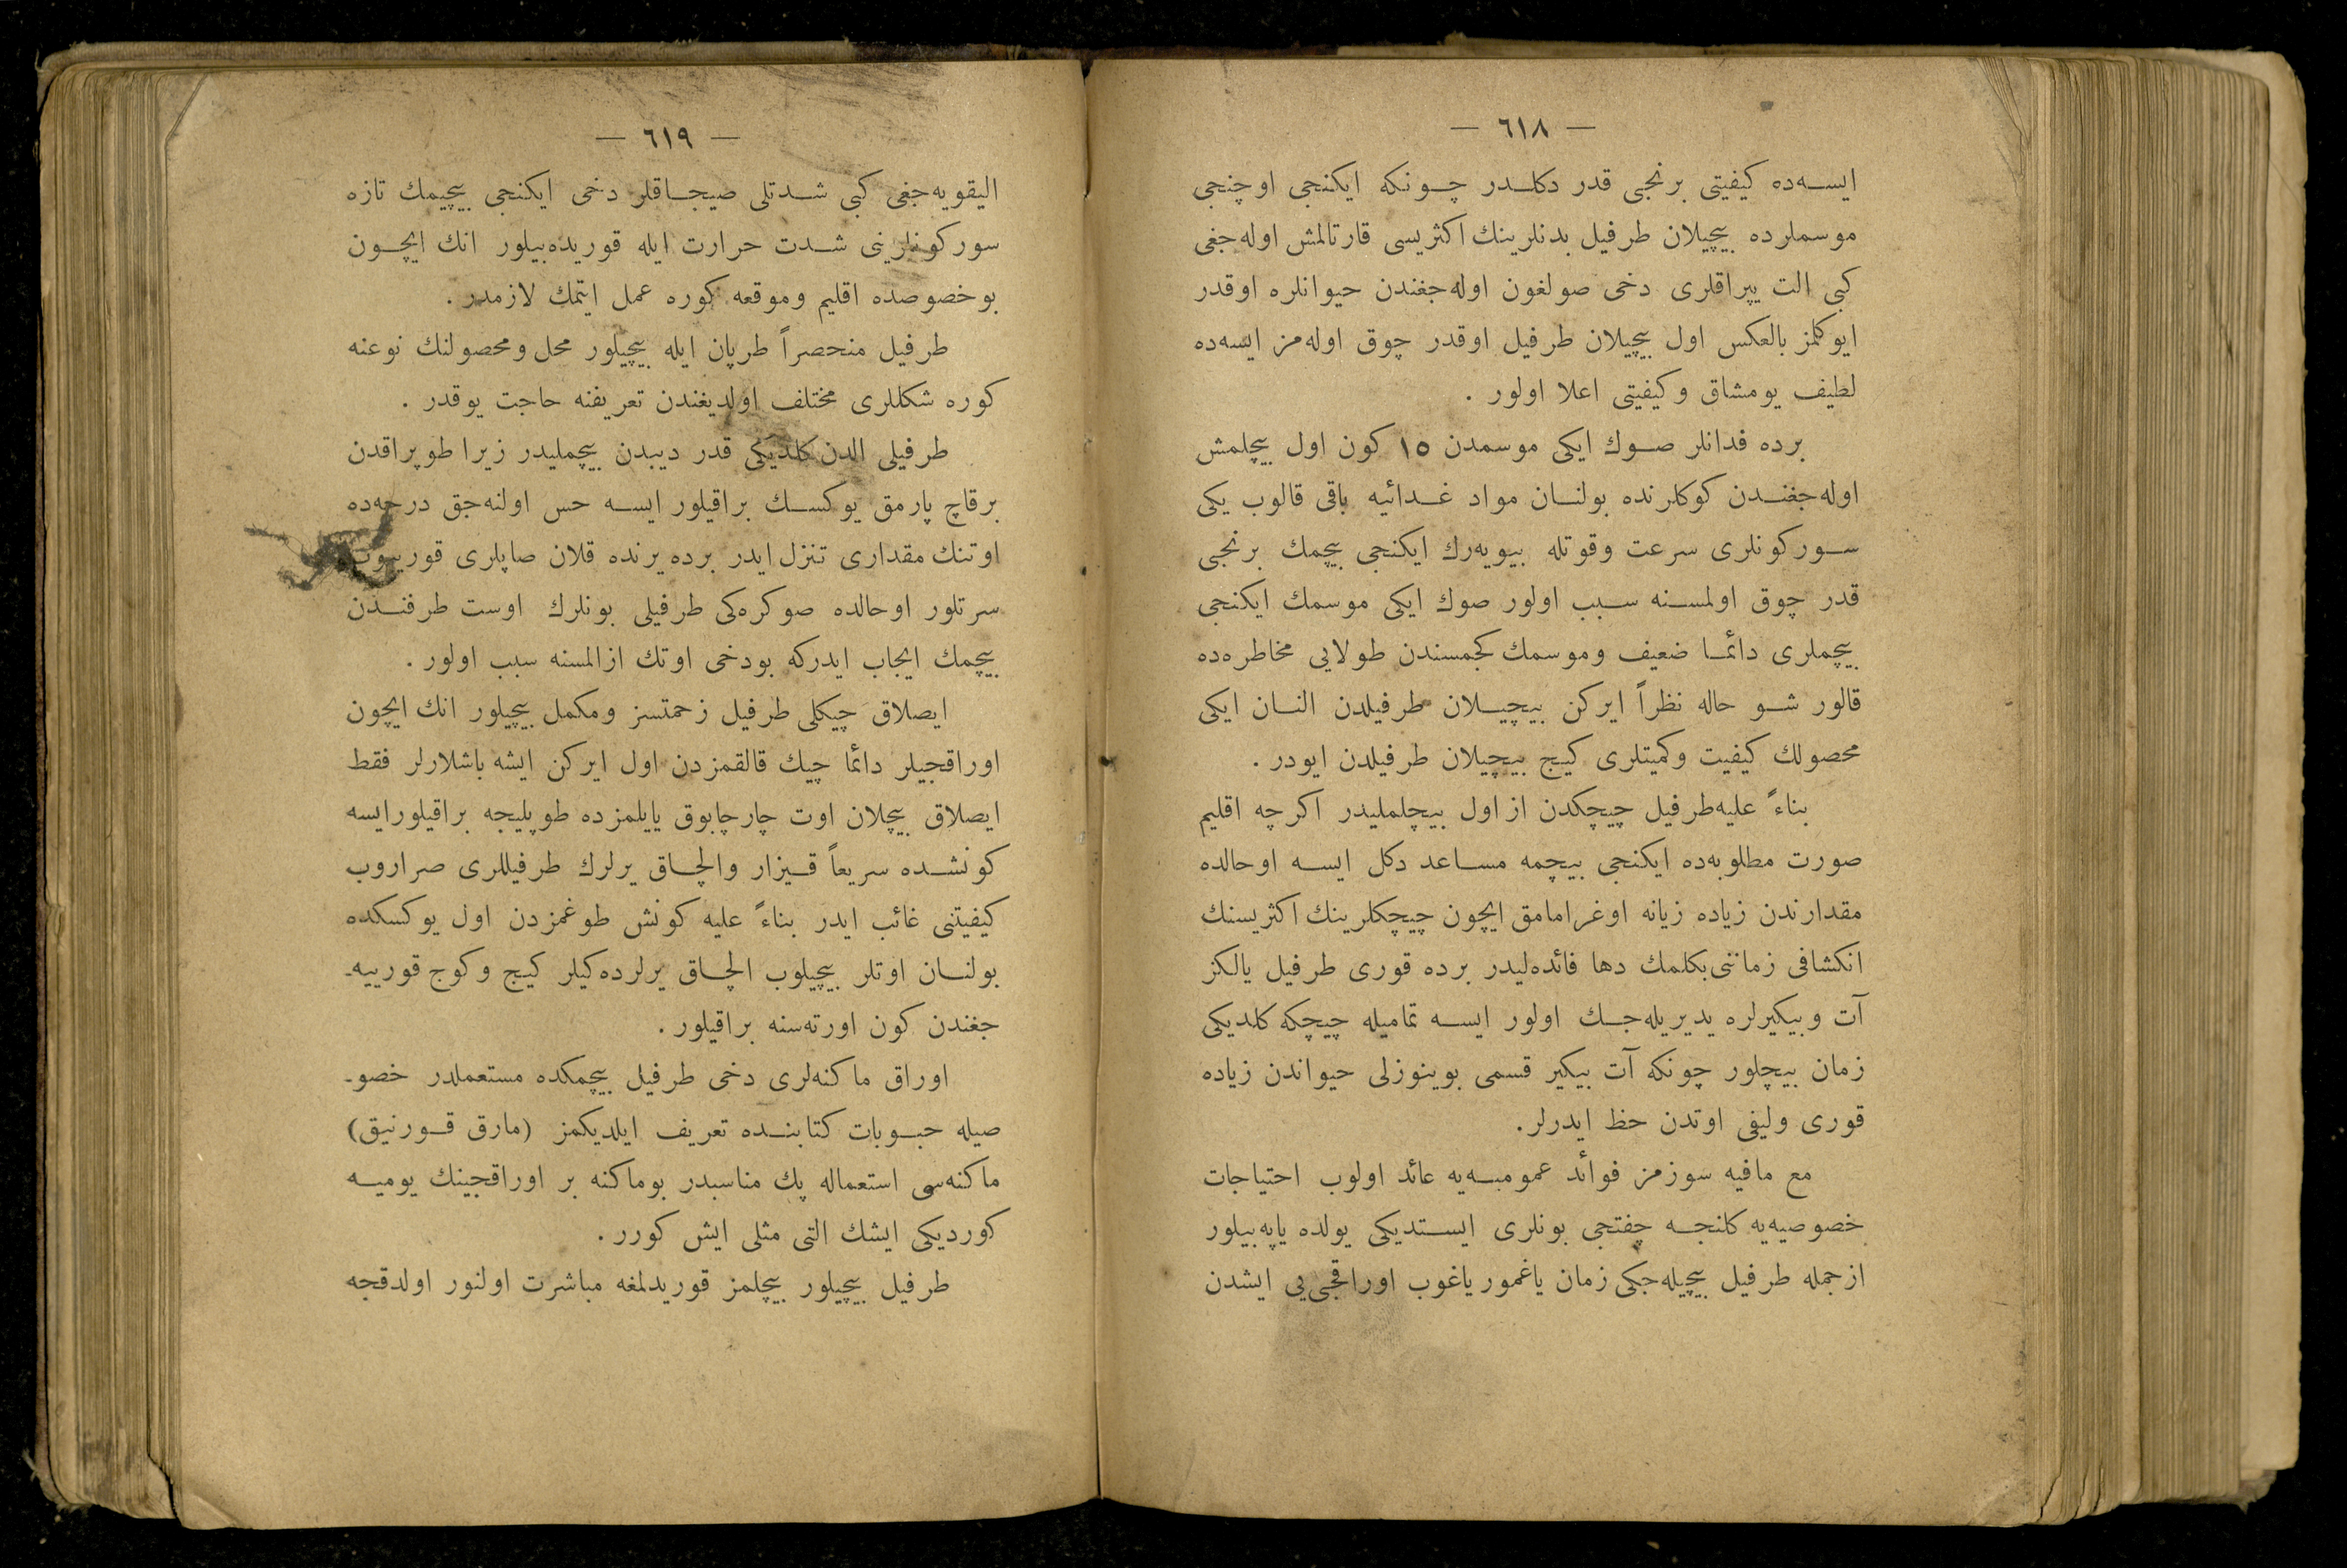 — ٦١٨ —
ایسه‌ده کیفیتی برنجی قدر دکلدر چونکه ایکنجی اوچنجی
موسملرده بیچیلان طرفیل بدنلرینك اکثریسی قارتالمش اوله‌جغی
کبی الت یپراقلری دخی صولغون اوله‌جغندن حیوانلره اوقدر
ایوکلمز بالعکس اول بیچیلان طرفیل اوقدر چوق اوله‌مز ایسه‌ده
لطیف یومشاق وکیفیتی اعلا اولور .
برده فدانلر صوك ایکی موسمدن ١٥ کون اول بیچلمش
اوله‌جغندن کوکلرنده بولنان مواد غدائیه باقی قالوب یکی
سورکونلری سرعت وقوتله بیویه‌رك ایکنجی بیچمك برنجی
قدر چوق اولمسنه سبب اولور صوك ایکی موسمك ایکنجی
بیچملری دائما ضعیف وموسمك کچمسندن طولایی مخاطره‌ده
قالور شو حاله نظراً ایرکن بیچیلان طرفیلدن النان ایکی
محصولك کیفیت وکمیتلری کیج بیچیلان طرفیلدن ایودر .
بناءً علیه‌طرفیل چیچکدن از اول بیچلملیدر اکرچه اقلیم
صورت مطلوبه‌ده ایکنجی بیچمه مساعد دکل ایسه اوحالده
مقدارندن زیاده زیانه اوغرامامق ایچون چیچکلرینك اکثریسنك
انکشافی زماننی‌بکلمك دها فائده‌لیدر برده قوری طرفیل یالکز
آت وبیکیرلره یدیریله‌جك اولور ایسه تمامیله چیچکه کلدیکی
زمان بیچلور چونکه آت بیکیر قسمی بوینوزلی حیواندن زیاده
قوری ولیفی اوتدن حظ ایدرلر.
مع مافیه سوزمز فوائد عمومیه‌یه عائد اولوب احتیاجات
خصوصیه‌یه کلنجه چفتجی بونلری ایستدیکی یولده یاپه‌بیلور
ازجمله طرفیل بیچیله‌جکی زمان یاغمور یاغوب اوراقجی‌یی ایشدن
— ٦١٩ —
الیقویه‌جغی کبی شدتلی صیجاقلر دخی ایکنجی بیچیمك تازه
سورکونلرینی شدت حرارت ایله قوریده‌بیلور انك ایچون
بوخصوصده اقلیم وموقعه کوره عمل ایتمك لازمدر .
طرفیل منحصراً طرپان ایله بیچیلور محل ومحصولنك نوعنه
کوره شکللری مختلف اولدیغندن تعریفنه حاجت یوقدر .
طرفیلی الدن کلدیکی قدر دیبدن بیچملیدر زیرا طوپراقدن
برقاچ پارمق یوکسك براقیلور ایسه حس اولنه‌جق درجه‌ده
اوتنك مقداری تنزل ایدر برده یرنده قلان صاپلری
سرتلور اوحالده صوکره‌کی طرفیلی بونلرك اوست طرفندن
بیچمك ایجاب ایدرکه بودخی اوتك ازالمسنه سبب اولور .
ایصلاق چیکلی طرفیل زحمتسز ومکمل بیچیلور انك ایچون
اوراقجیلر دائما چیك قالقمزدن اول ایرکن ایشه باشلارلر فقط
ایصلاق بیچلان اوت چارچابوق یایلمزده طوپلیجه براقیلورایسه
کونشده سریعاً قیزار والچاق یرلرك طرفیللری صراروب
کیفیتنی غائب ایدر بناءً علیه کونش طوغمزدن اول یوکسکده
بولنان اوتلر بیچیلوب الچاق یرلرده‌کیلر کیج وکوج قورییه‌ـ
جغندن کون اورته‌سنه براقیلور .
اوراق ماکنه‌لری دخی طرفیل بیچمکده مستعملدر خصوـ
صیله حبوبات کتابنده تعریف ایلدیکمز (مارق قورنیق)
ماکنه‌سی استعماله پك مناسبدر بوماکنه بر اوراقجینك یومیه
کوردیکی ایشك التی مثلی ایش کورر .
طرفیل بیچیلور بیچلمز قوریدلمغه مباشرت اولنور اولدقجه